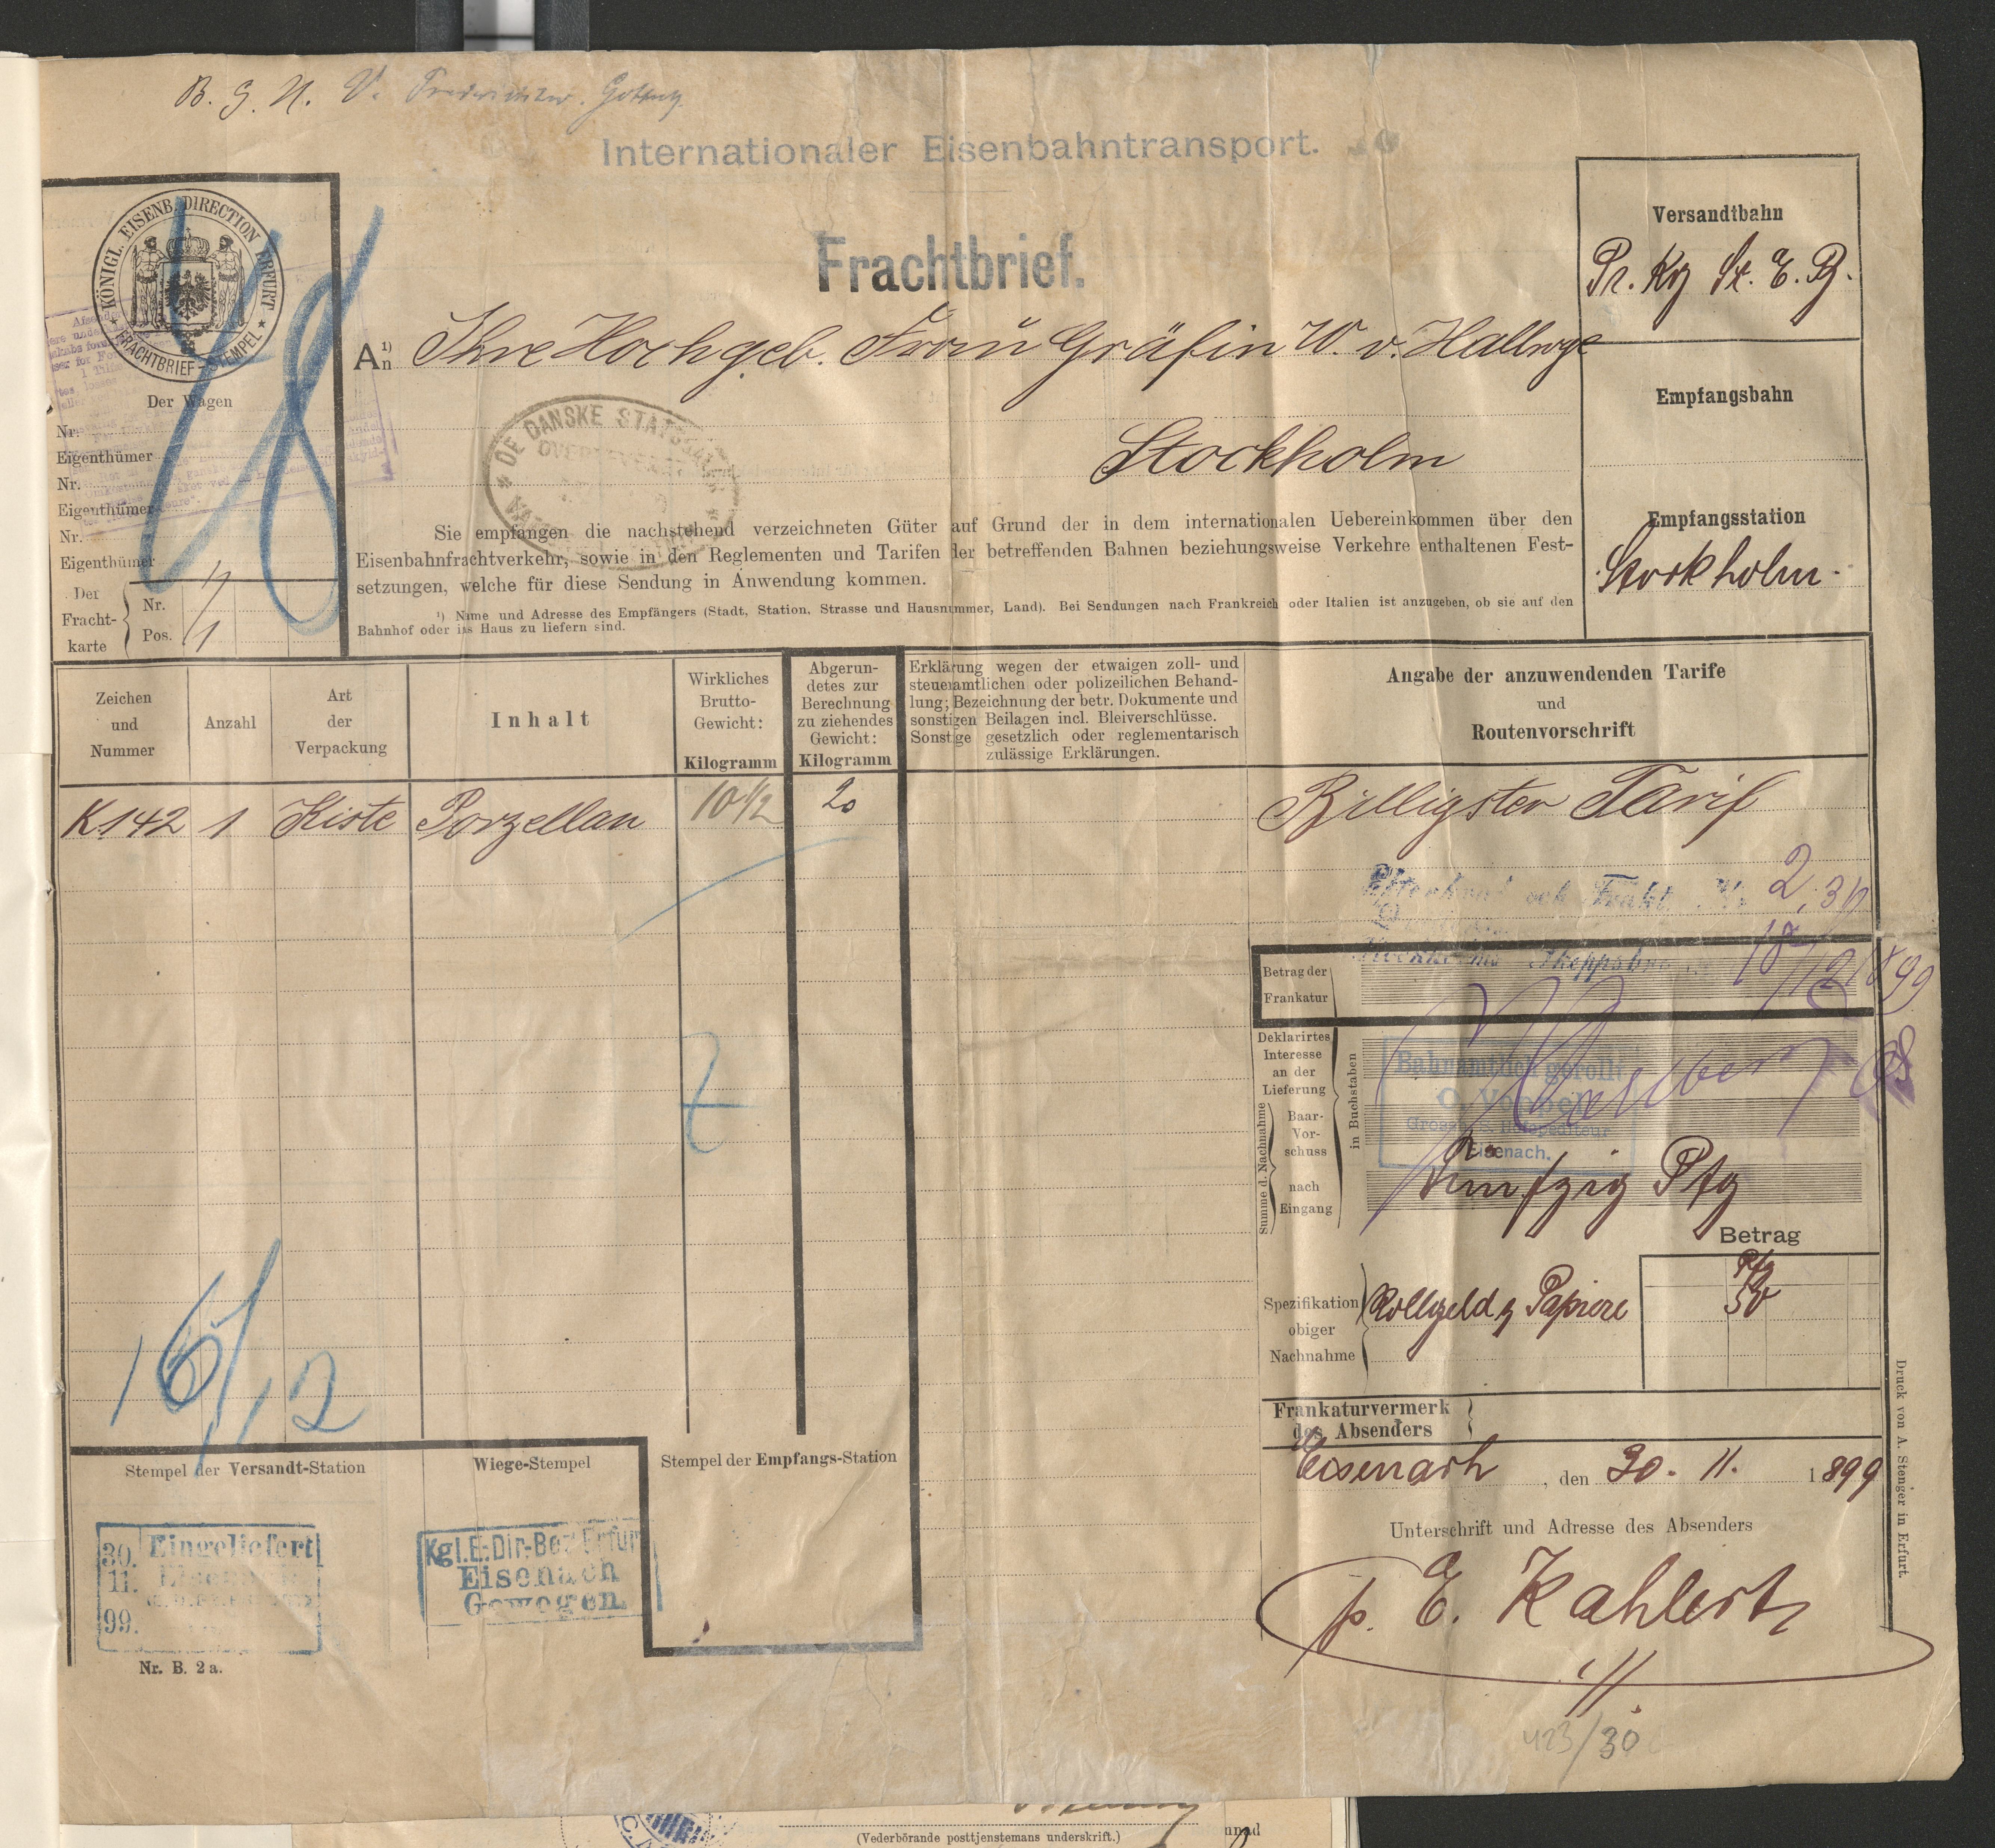 B. G. N. V.
Internationaler Eisenbahntransport.
KÖNIGL. EISENB. DIRECTION ERFURT
* FRACHTBRIEF-STEMPEL *
48
Frachtbrief.
Versandtbahn
Pr. Kg St. E. B.
An 1) Ihre Hochgeb. Frau Gräfin W. v. Hallwyl
Stockholm
Empfangsbahn
Empfangsstation
Stockholm.
* DE DANSKE STATS
Der Wagen
Nr.
Eigenthümer
Nr.
Eigenthümer
Nr.
Eigenthümer
Der Fracht-karte
Nr.
Pos. 1
Sie empfangen die nachstehend verzeichneten Güter auf Grund der in dem internationalen Uebereinkommen über den
Eisenbahnfrachtverkehr, sowie in den Reglementen und Tarifen der betreffenden Bahnen beziehungsweise Verkehre enthaltenen Fest-
setzungen, welche für diese Sendung in Anwendung kommen.
1) Name und Adresse des Empfängers (Stadt, Station, Strasse und Hausnummer, Land). Bei Sendungen nach Frankreich oder Italien ist anzugeben, ob sie auf den
Bahnhof oder ins Haus zu liefern sind.
Zeichen
und
Nummer
Anzahl
Art
der
Verpackung
Inhalt
Wirkliches
Brutto-
Gewicht:
Kilogramm
Abgerun-
detes zur
Berechnung
zu ziehendes
Gewicht:
Kilogramm
Erklärung wegen der etwaigen zoll- und
steueramtlichen oder polizeilichen Behand-
lung; Bezeichnung der betr. Dokumente und
sonstigen Beilagen incl. Bleiverschlüsse.
Sonstige gesetzlich oder reglementarisch
zulässige Erklärungen.
Angabe der anzuwendenden Tarife
und
Routenvorschrift
K142 1 Kiste Porzellan 10 1/2 20
Billigster Tarif
Betrag der
Frankatur
Deklarirtes
Interesse
an der
Lieferung
Summe d. Nachnahme
Baar-
Vor-
schuss
nach
Eingang
in Buchstaben
Bahnamtlich gerollt
O. Vöppel
Eisenach.
Fünfzig Pfg
Betrag
Pfg
50
Spezifikation
obiger
Nachnahme
Rollgeld & Papiere
16/12
Frankaturvermerk
des Absenders
Eisenach, den 30. 11. 1899
Unterschrift und Adresse des Absenders
p. E. Kahlert
Stempel der Versandt-Station
Wiege-Stempel
Stempel der Empfangs-Station
30. Eingeliefert
11.
99.
Kgl. E.-Dir.-Bez Erfurt
Eisenach
Gewogen.
Nr. B. 2 a.
Druck von A. Stenger in Erfurt.
423/30
(Vederbörande posttjenstemans underskrift.)